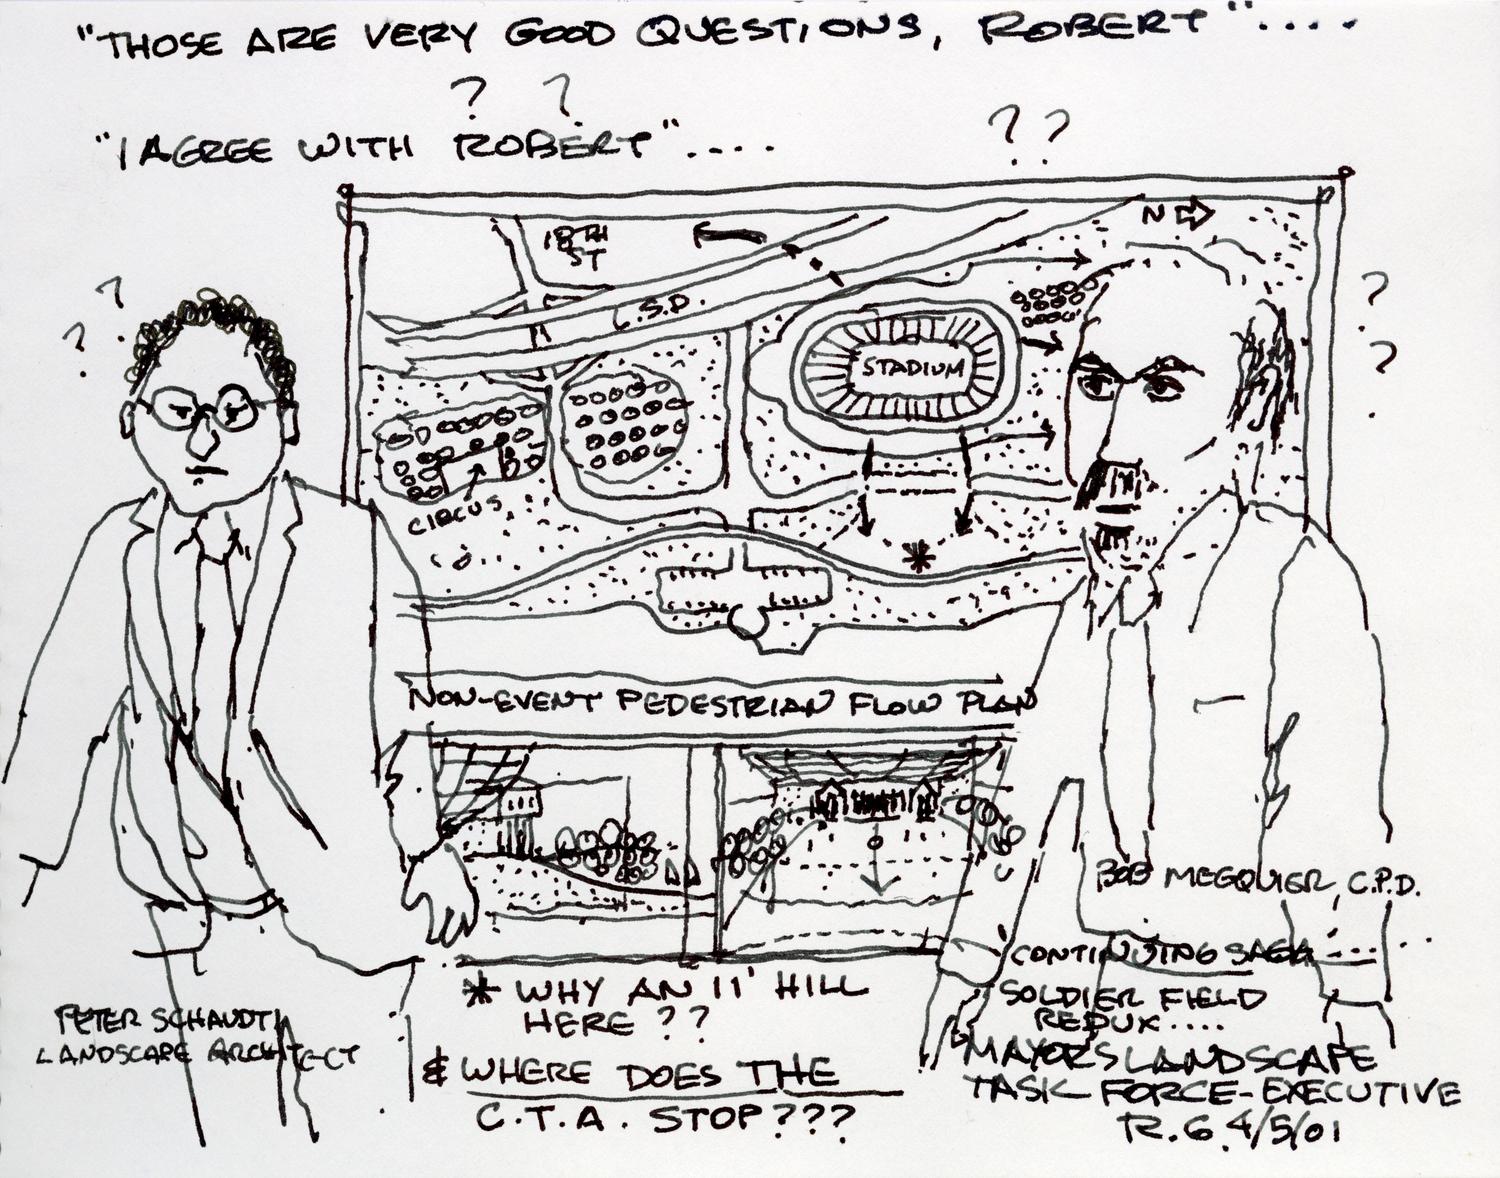 "THOSE ARE VERY GOOD QUESTIONS, ROBERT"....
? ?
"I AGREE WITH ROBERT"....
? ?
N
18TH
ST
L.S.D.
? ?
? ?
STADIUM
CIRCUS
*
NON-EVENT PEDESTRIAN FLOW PLAN
BOB MEGQUIER, C.P.D.
CONTINUING SAGA ....
SOLDIER FIELD
REDUX....
MAYORS LANDSCAPE
TASK FORCE-EXECUTIVE
R.G. 4/5/01
PETER SCHAUDT
LANDSCAPE ARCHITECT
* WHY AN 11' HILL
HERE ??
& WHERE DOES THE
C.T.A. STOP???